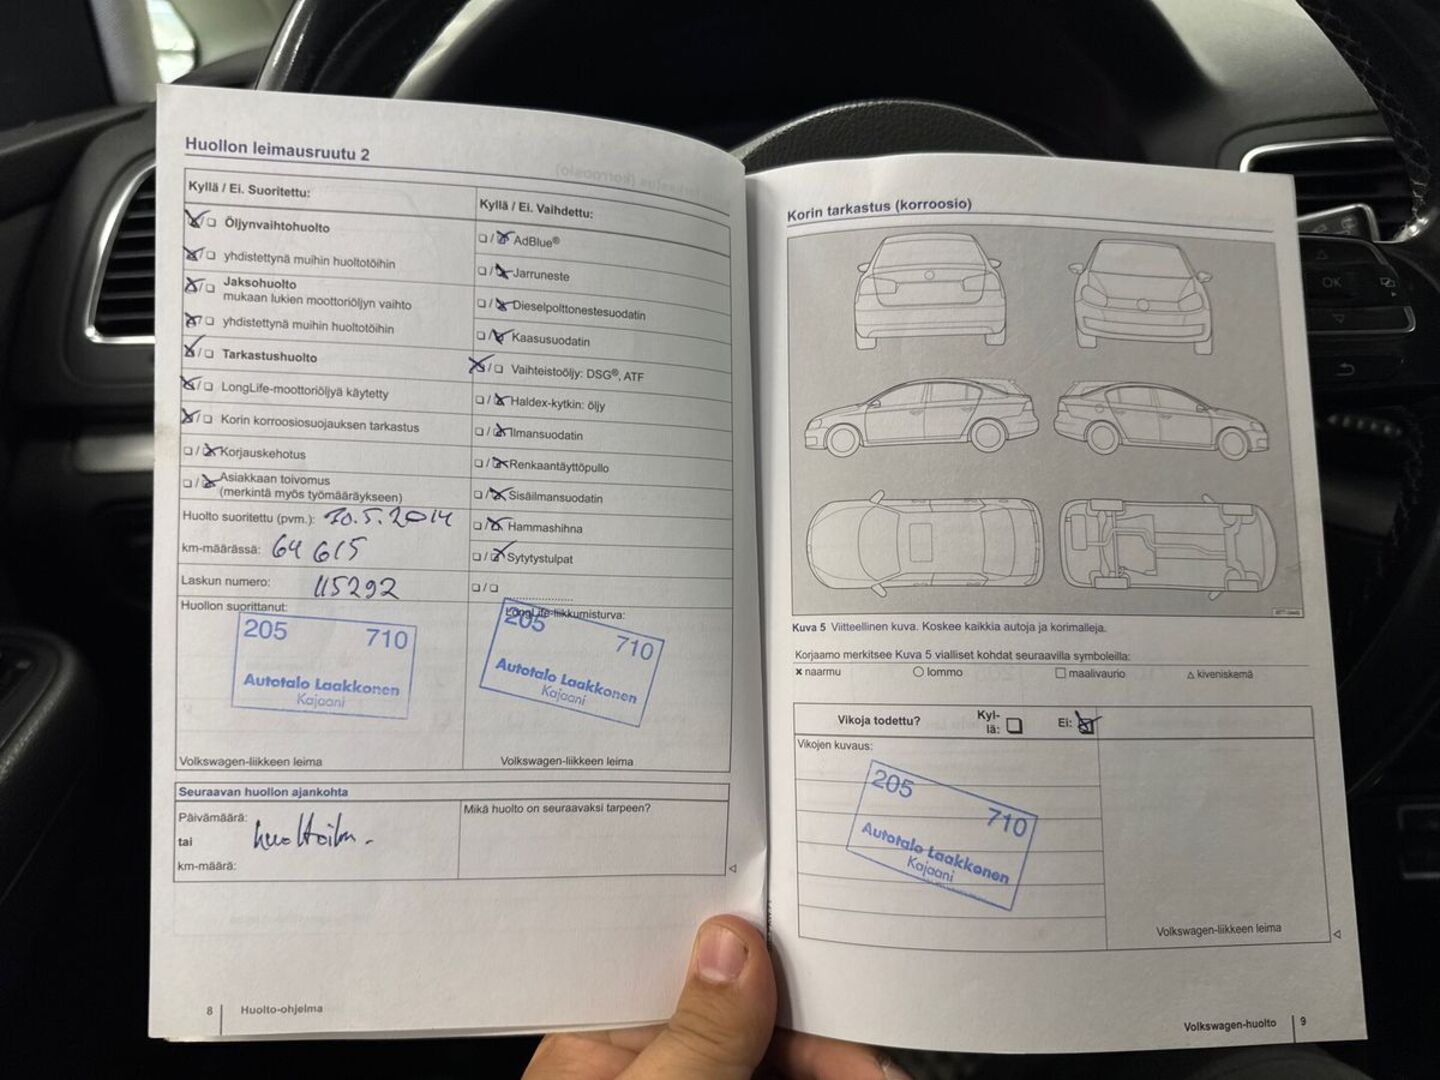 Huollon leimausruutu 2
Kyllä / Ei. Suoritettu:
Öljynvaihtohuolto
yhdistettynä muihin huoltotöihin
Jaksohuolto
mukaan lukien moottoriöljyn vaihto
yhdistettynä muihin huoltotöihin
Tarkastushuolto
LongLife-moottoriöljyä käytetty
Korin korroosiosuojauksen tarkastus
Korjauskehotus
Asiakkaan toivomus
(merkintä myös työmääräykseen)
Huolto suoritettu (pvm.): 30.5.2014
km-määrässä: 64 615
Laskun numero: 115292
Kyllä / Ei. Vaihdettu:
AdBlue®
Jarruneste
Dieselpolttonestesuodatin
Kaasusuodatin
Vaihteistoöljy: DSG®, ATF
Haldex-kytkin: öljy
Ilmansuodatin
Renkaantäyttöpullo
Sisäilmansuodatin
Hammashihna
Sytytystulpat
Huollon suorittanut:
205 710
Autotalo Laakkonen
Kajaani
Volkswagen-liikkeen leima
LongLife-liikkumisturva:
205 710
Autotalo Laakkonen
Kajaani
Volkswagen-liikkeen leima
Seuraavan huollon ajankohta
Päivämäärä:
tai
km-määrä:
Mikä huolto on seuraavaksi tarpeen?
8 Huolto-ohjelma
Korin tarkastus (korroosio)
Kuva 5 Viitteellinen kuva. Koskee kaikkia autoja ja korimalleja.
Korjaamo merkitsee Kuva 5 vialliset kohdat seuraavilla symboleilla:
× naarmu ○ lommo □ maalivaurio △ kiveniskemä
Vikoja todettu? Kyl-
lä: Ei:
Vikojen kuvaus:
205 710
Autotalo Laakkonen
Kajaani
Volkswagen-liikkeen leima
Volkswagen-huolto 9
OK